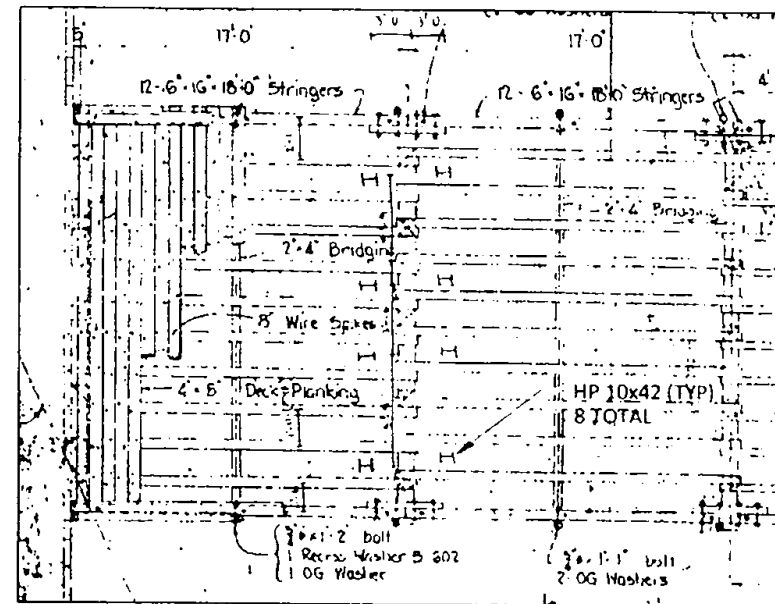 17'-0"
3'-0"
3'-0"
17'-0"
4'
12-6"×16"×18'-0" Stringers
12-6"×16"×18'-0" Stringers
2"×4" Bridging
2"×4" Bridgin
8" Wire Spikes
4"×8" Deck Planking
HP 10x42 (TYP)
8 TOTAL
bolt
Washer
1 OG Washer
bolt
2-OG Washers